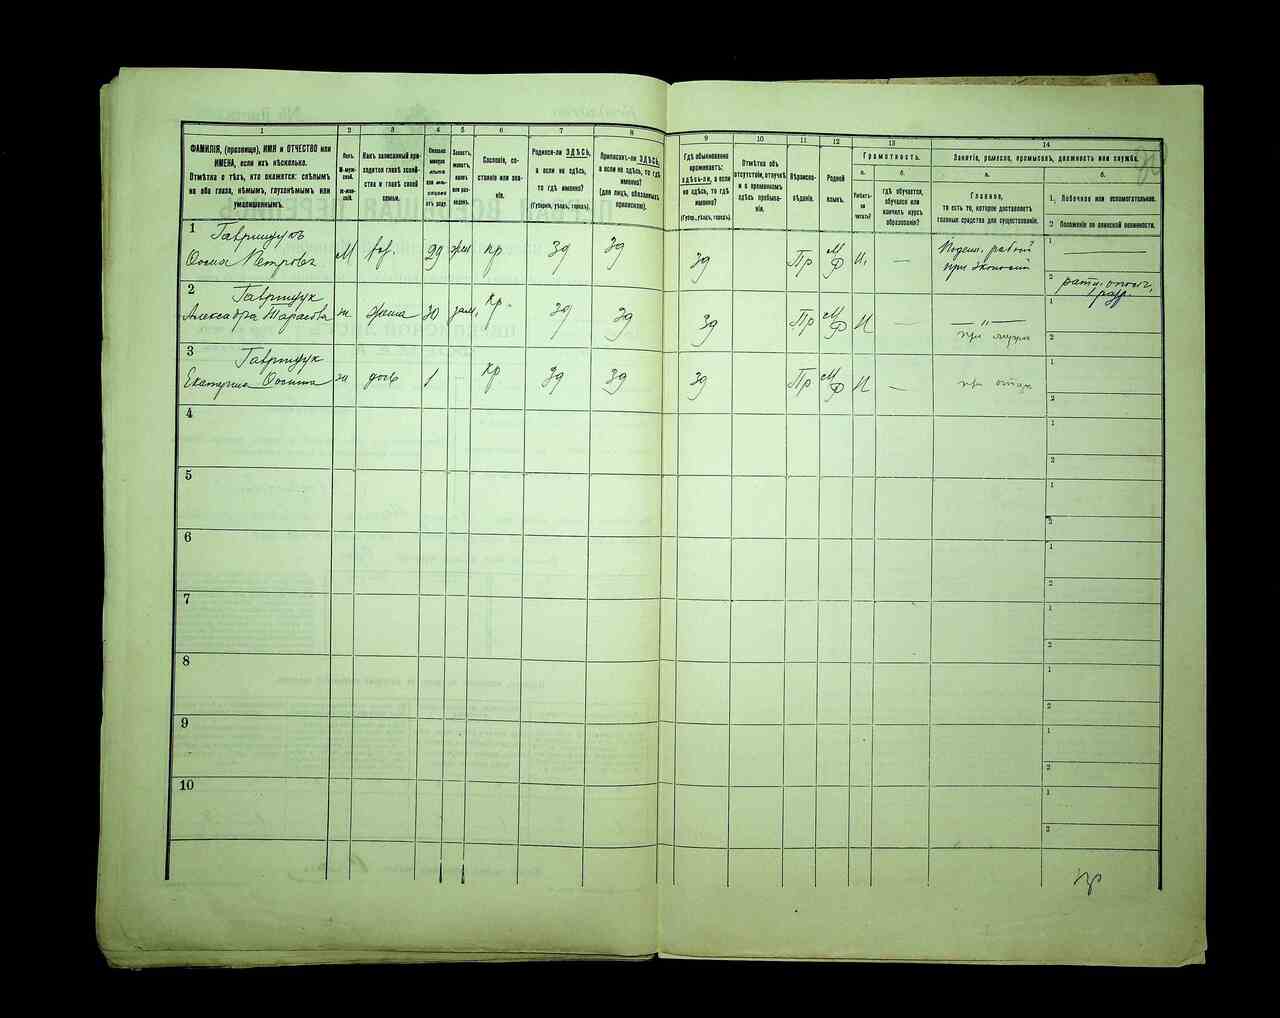 1 2 3 4 5 6 7 8 9 10 11 12 13 14
ФАМИЛІЯ, (прозвище), ИМЯ и ОТЧЕСТВО или
ИМЕНА, если ихъ нѣсколько.
Отмѣтка о тѣхъ, кто окажется: слѣпымъ
на оба глаза, нѣмымъ, глухонѣмымъ или
умалишеннымъ.
Полъ.
М-муж-
ской.
Ж-жен-
скій.
Какъ записанный при-
ходится главѣ хозяй-
ства и главѣ своей
семьи.
Сколько
минуло
лѣтъ
или мѣ-
сяцевъ
отъ роду.
Холостъ,
женатъ,
вдовъ
или раз-
веденъ.
Сословіе, со-
стояніе или зва-
ніе.
Родился-ли ЗДѢСЬ,
а если не здѣсь,
то гдѣ именно?
(Губернія, уѣздъ, городъ).
Приписанъ-ли ЗДѢСЬ,
а если не здѣсь, то гдѣ
именно?
(для лицъ, обязанныхъ
припиской).
Гдѣ обыкновенно
проживаетъ:
здѣсь-ли, а если
не здѣсь, то гдѣ
именно?
(Губер., уѣздъ, городъ).
Отмѣтка объ
отсутствіи, отлучкѣ
и о временномъ
здѣсь пребыва-
ніи.
Вѣроиспо-
вѣданіе.
Родной
языкъ.
Грамотность.
а.
Умѣетъ-
ли
читать?
б.
гдѣ обучается,
обучался или
кончилъ курсъ
образованія?
Занятіе, ремесло, промыселъ, должность или служба.
а.
Главное,
то есть то, которое доставляетъ
главныя средства для существованія.
б.
1. Побочное или вспомогательное.
2 Положеніе по воинской повинности.
1 Гаврищукъ
Осипъ Петровъ М хоз. 29 жен кр Зд Зд Зд Пр М Ф Н. — Поден. рабоч
при экономіи
1 —
2 рату. ополч.
1 разр.
2 Гаврищук
Александра Тарасова ж жена 30 зам. кр. Зд Зд Зд Пр М Ф Н — — " —
при мужѣ
1
2
3 Гаврищук
Екатерина Осипова ж дочь 1 — кр Зд Зд Зд Пр М Ф Н — при отцѣ
1
2
4
1
2
5
1
2
6
1
2
7
1
2
8
1
2
9
1
2
10
1
2